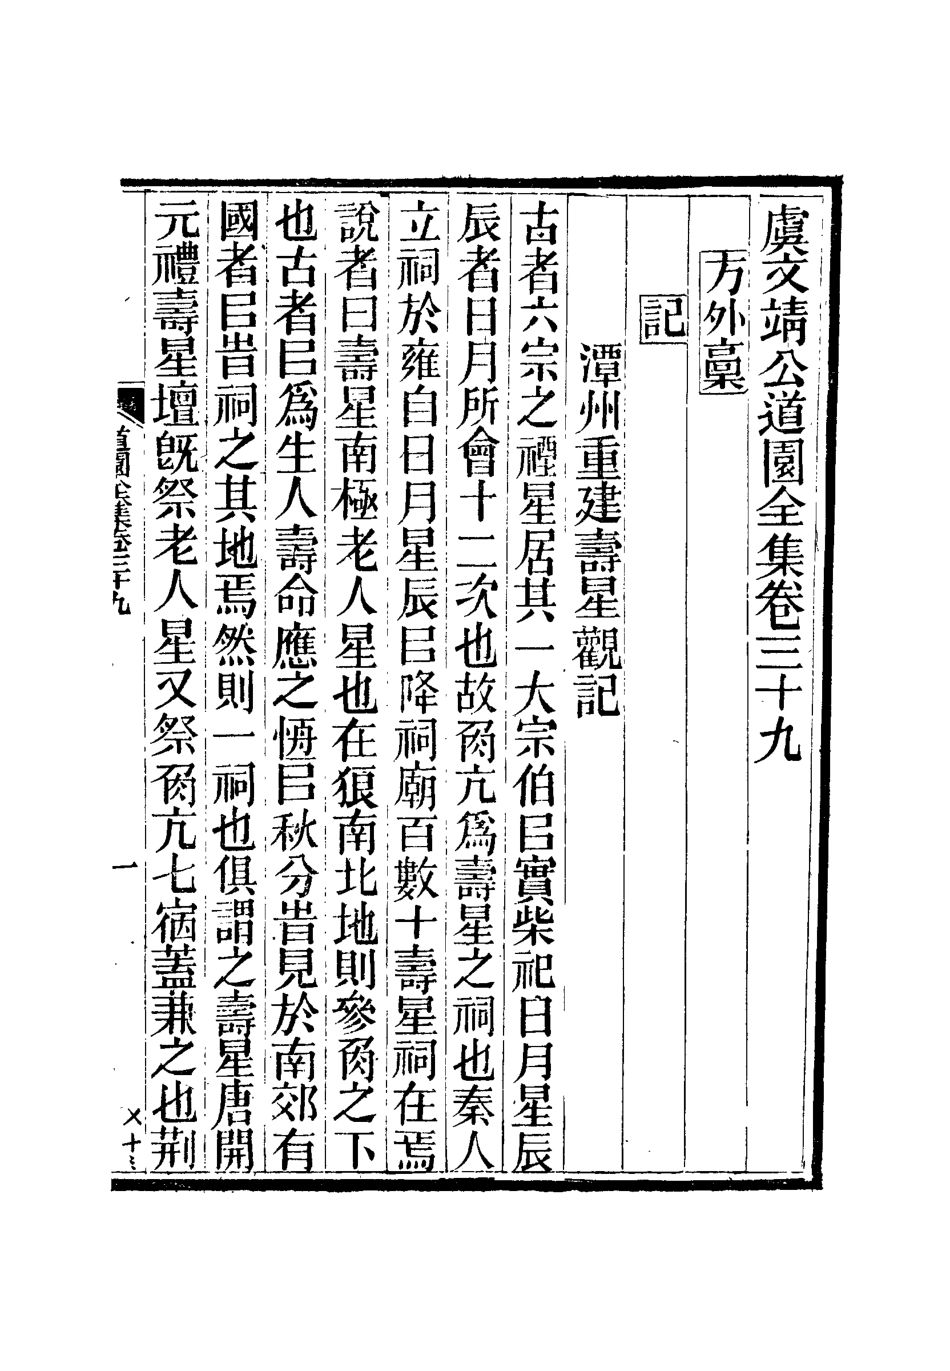 虞文靖公道園全集卷三十九
方外稾
記
潭州重建壽星觀記
古者六宗之禋星居其一大宗伯㠯實柴祀日月星辰
辰者日月所會十二次也故角亢爲壽星之祠也秦人
立祠於雍自日月星辰㠯降祠廟百數十壽星祠在焉
說者曰壽星南極老人星也在狼南北地則參角之下
也古者㠯爲生人壽命應之每㠯秋分旹見於南郊有
國者㠯旹祠之其地焉然則一祠也俱謂之壽星唐開
元禮壽星壇旣祭老人星又祭角亢七宿蓋兼之也荆
道園全集卷三十九
一